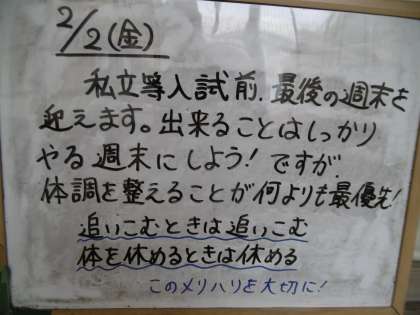 2/2(金)
私立等入試前、最後の週末を
迎えます。出来ることはしっかり
やる週末にしよう!ですが
体調を整えることが何よりも最優先!
追いこむときは追いこむ
体を休めるときは休める
このメリハリを大切に!